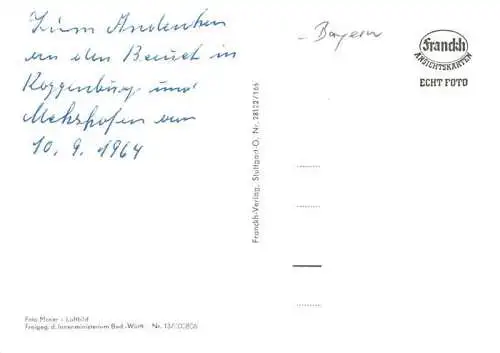 Zum Andenken
an den Besuch in
Roggenburg und
Meßhofen am
10. 9. 1964
- Bayern
Franckh
ANSICHTSKARTEN
ECHT FOTO
Franckh-Verlag, Stuttgart-O. Nr. 28122/166
Foto Moser - Luftbild
Freigeg. d. Innenministerium Bad.-Württ. Nr.